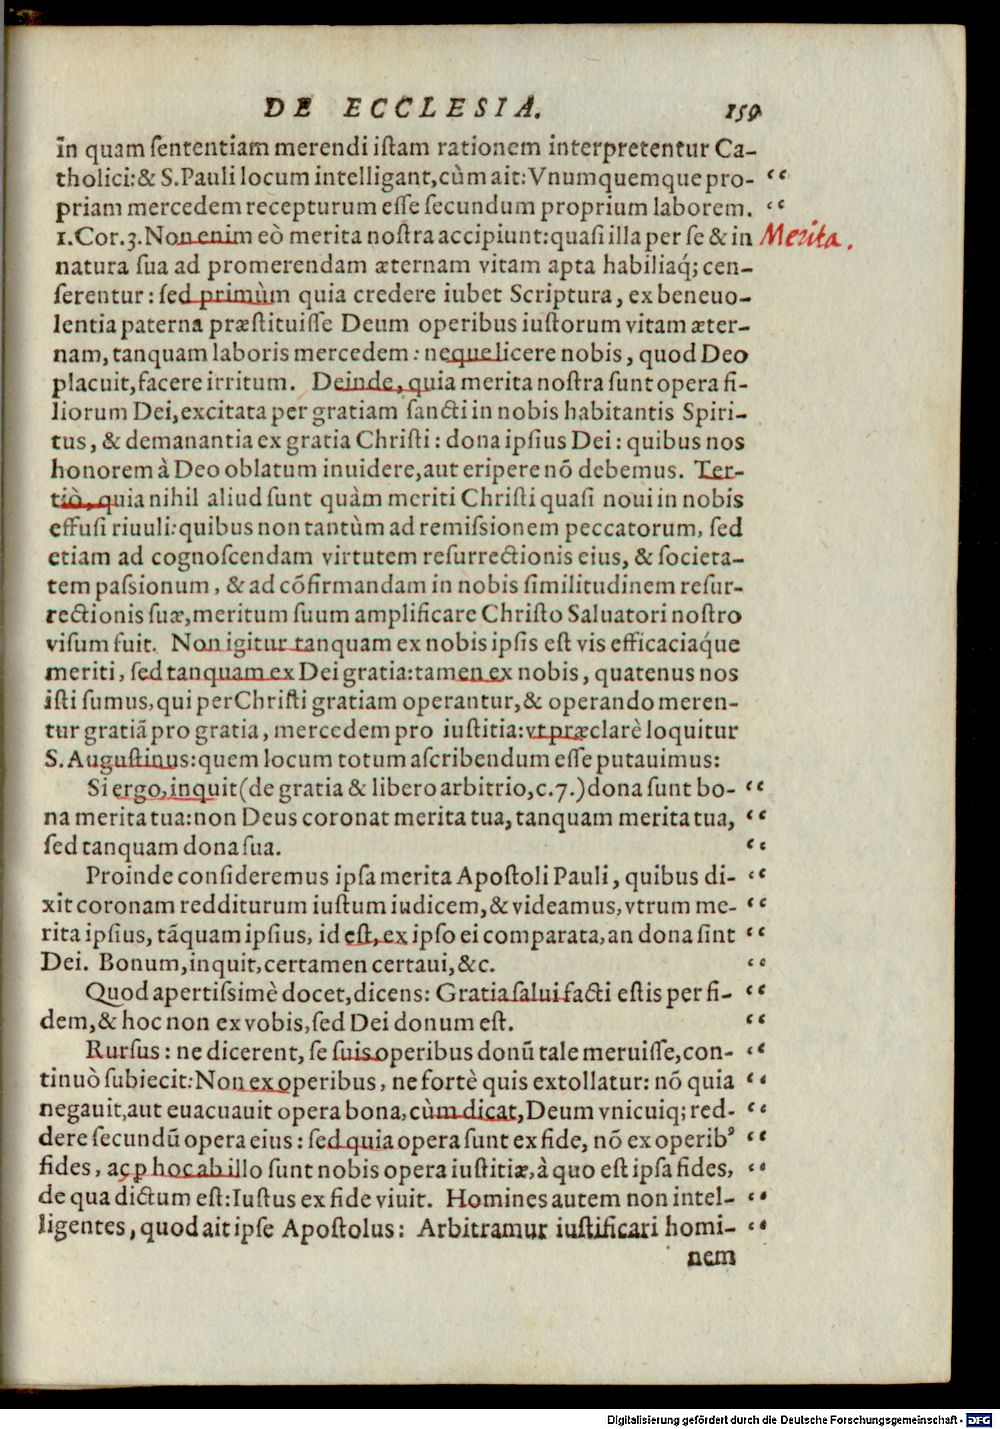 DE ECCLESIA. 159
in quam sententiam merendi istam rationem interpretentur Ca-
tholici: & S. Pauli locum intelligant, cùm ait: Vnumquemque pro- “
priam mercedem recepturum esse secundum proprium laborem. “
1. Cor. 3. Non enim eò merita nostra accipiunt: quasi illa per se & in Merita.
natura sua ad promerendam æternam vitam apta habiliaq́; cen-
serentur: sed primùm quia credere iubet Scriptura, ex beneuo-
lentia paterna præstituisse Deum operibus iustorum vitam æter-
nam, tanquam laboris mercedem: neque licere nobis, quod Deo
placuit, facere irritum. Deinde, quia merita nostra sunt opera fi-
liorum Dei, excitata per gratiam sancti in nobis habitantis Spiri-
tus, & demanantia ex gratia Christi: dona ipsius Dei: quibus nos
honorem à Deo oblatum inuidere, aut eripere nō debemus. Ter-
tiò, quia nihil aliud sunt quàm meriti Christi quasi noui in nobis
effusi riuuli: quibus non tantùm ad remissionem peccatorum, sed
etiam ad cognoscendam virtutem resurrectionis eius, & societa-
tem passionum, & ad cōfirmandam in nobis similitudinem resur-
rectionis suæ, meritum suum amplificare Christo Saluatori nostro
visum fuit. Non igitur tanquam ex nobis ipsis est vis efficaciaq́ue
meriti, sed tanquam ex Dei gratia: tamen ex nobis, quatenus nos
isti sumus, qui per Christi gratiam operantur, & operando meren-
tur gratiā pro gratia, mercedem pro iustitia: vt præclarè loquitur
S. Augustinus: quem locum totum ascribendum esse putauimus:
Si ergo, inquit (de gratia & libero arbitrio, c. 7.) dona sunt bo- “
na merita tua: non Deus coronat merita tua, tanquam merita tua, “
sed tanquam dona sua. “
Proinde consideremus ipsa merita Apostoli Pauli, quibus di- “
xit coronam redditurum iustum iudicem, & videamus, vtrum me- “
rita ipsius, tāquam ipsius, id est, ex ipso ei comparata, an dona sint “
Dei. Bonum, inquit, certamen certaui, &c. “
Quod apertissimè docet, dicens: Gratia salui facti estis per fi- “
dem, & hoc non ex vobis, sed Dei donum est. “
Rursus: ne dicerent, se suis operibus donū tale meruisse, con- “
tinuò subiecit: Non ex operibus, ne fortè quis extollatur: nō quia “
negauit, aut euacuauit opera bona, cùm dicat, Deum vnicuiq; red- “
dere secundū opera eius: sed quia opera sunt ex fide, nō ex operibꝰ “
fides, ac ꝓ hoc ab illo sunt nobis opera iustitiæ, à quo est ipsa fides, “
de qua dictum est: Iustus ex fide viuit. Homines autem non intel- “
ligentes, quod ait ipse Apostolus: Arbitramur iustificari homi- “
nem
Digitalisierung gefördert durch die Deutsche Forschungsgemeinschaft - DFG